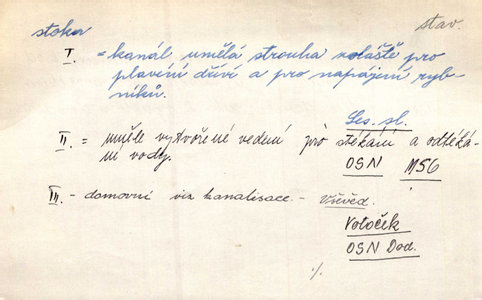 stoka stav.
I. = kanál umělá strouha zvláště pro
plavení dříví a pro napájení ryb-
níků.
Les. sl.
II. = uměle vytvořené vedení pro stékání a odtéká-
ní vody.
OSN M56
III. - domovní viz kanalisace - Všivěd.
Votočík
OSN Dod.
./.